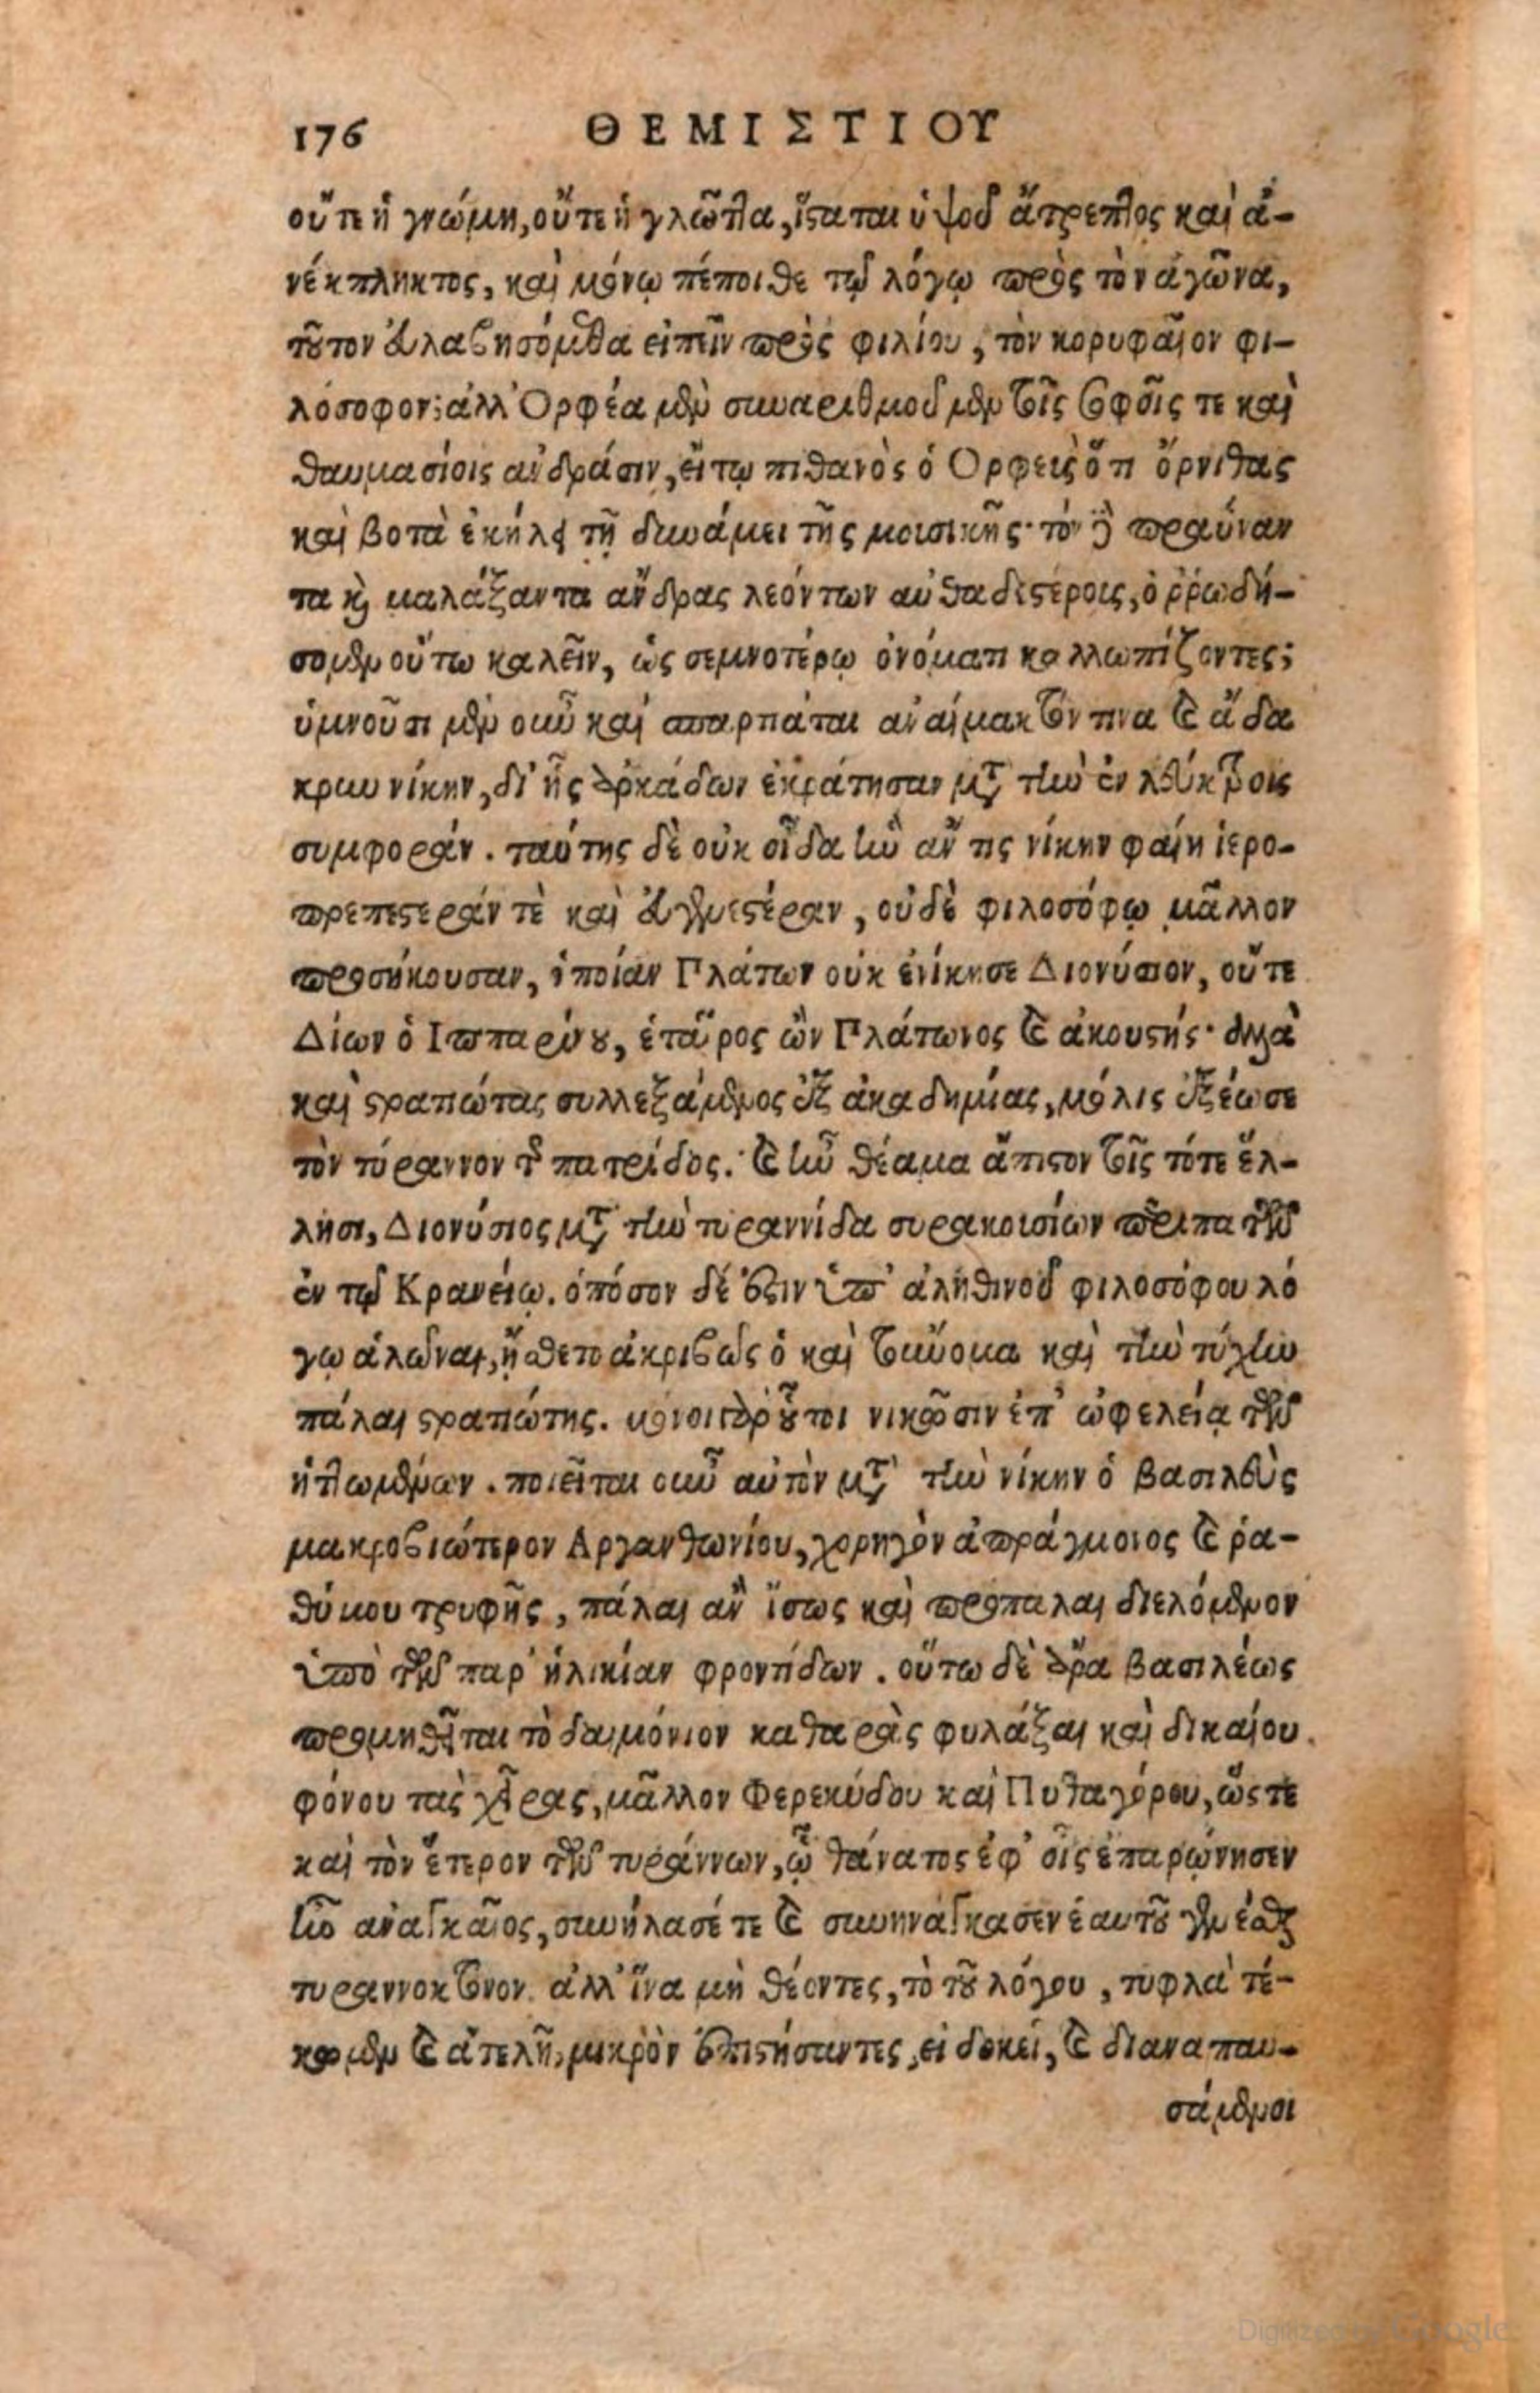 176 ΘΕΜΙΣΤΙΟΥ
οὔτε ἡ γνώμη, οὔτε ἡ γλῶττα, ἵσταται ὑψοῦ ἄτρεπτος καὶ ἀ-
νέκπληκτος, καὶ μόνῳ πέποιθε τῷ λόγῳ πρὸς τὸν ἀγῶνα,
τοῦτον εὐλαβησόμεθα εἰπεῖν πρὸς φιλίου, τὸν κορυφαῖον φι-
λόσοφον; ἀλλ' Ὀρφέα μὲν συναριθμοῦμεν τοῖς σοφοῖς τε καὶ
θαυμασίοις ἀνδράσιν, εἴ τῳ πιθανὸς ὁ Ορφεὺς ὅτι ὄρνιθας
καὶ βοτὰ ἐκήλει τῇ δυνάμει τῆς μουσικῆς· τὸν δὲ πραΰναν
τα καὶ μαλάξαντα ἄνδρας λεόντων αὐθαδεστέρους, ὀῤῥωδή-
σομεν οὕτω καλεῖν, ὡς σεμνοτέρῳ ὀνόματι καλλωπίζοντες;
ὑμνοῦσι μὲν οὖν καὶ σπαρτιᾶται ἀναίμακτόν τινα καὶ ἄδα
κρυν νίκην, δι' ἧς ἀρκάδων ἐκράτησαν μετὰ τὴν ἐν λεύκτροις
συμφοράν. ταύτης δὲ οὐκ οἶδα ἣν ἄν τις νίκην φαίη ἱερο-
πρεπεστεράν τὲ καὶ εὐμενεστέραν, οὐδὲ φιλοσόφῳ μᾶλλον
προσήκουσαν, ὁποίαν Πλάτων οὐκ ἐνίκησε Διονύσιον, οὔτε
Δίων ὁ Ιππαρίνου, ἑταῖρος ὢν Πλάτωνος καὶ ἀκουστής· ἀλλὰ
καὶ στρατιώτας συλλεξάμενος ἐξ ἀκαδημίας, μόλις ἐξέωσε
τὸν τύραννον τῆς πατρίδος. καὶ ἦν θέαμα ἄπιστον τοῖς τότε ἕλ-
λησι, Διονύσιος μετὰ τὴν τυραννίδα συρακουσίων περιπατῶν
ἐν τῷ Κρανείῳ. ὁπόσον δέ ἐστιν ὑπ' ἀληθινοῦ φιλοσόφου λό
γῳ ἁλῶναι, ᾔσθετο ἀκριβῶς ὁ καὶ τοὔνομα καὶ τὴν τύχην
πάλαι στρατιώτης. μόνοι γὰρ οὗτοι νικῶσιν ἐπ' ὠφελείᾳ τῶν
ἡττωμένων. ποιεῖται οὖν αὐτὸν μετὰ τὴν νίκην ὁ βασιλεὺς
μακροβιώτερον Αργανθωνίου, χορηγὸν ἀπράγμονος καὶ ῥα-
θύμου τρυφῆς, πάλαι ἂν ἴσως καὶ πρόπαλαι διελόμενον
ὑπὸ τῶν παρ' ἡλικίαν φροντίδων. οὕτω δὲ ἄρα βασιλέως
προμηθεῖται τὸ δαιμόνιον καθαρὰς φυλάξαι καὶ δικαίου
φόνου τὰς χεῖρας, μᾶλλον Φερεκύδου καὶ Πυθαγόρου, ὥστε
καὶ τὸν ἕτερον τῶν τυράννων, ᾧ θάνατος ἐφ' οἷς ἐπαρῴνησεν
ἦν ἀναγκαῖος, συνήλασέ τε καὶ συνηνάγκασεν ἑαυτοῦ γενέσθαι
τυραννοκτόνον. ἀλλ' ἵνα μὴ θέοντες, τὸ τοῦ λόγου, τυφλὰ τέ-
κωμεν καὶ ἀτελῆ, μικρὸν ἐπιστήσαντες, εἰ δοκεῖ, καὶ διαναπαυ-
σάμενοι